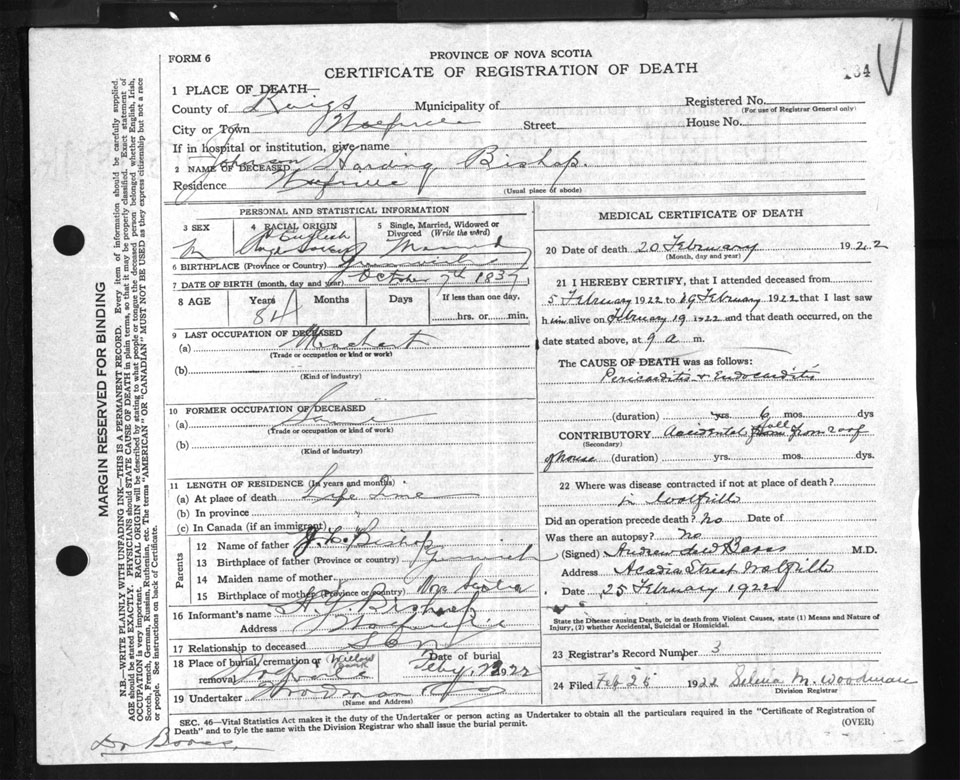 FORM 6
PROVINCE OF NOVA SCOTIA
CERTIFICATE OF REGISTRATION OF DEATH
134
1 PLACE OF DEATH—
County of Kings Municipality of
Registered No.
(For use of Registrar General only)
City or Town Wolfville Street House No.
If in hospital or institution, give name
2 NAME OF DECEASED Johnson Harding Bishop.
Residence Wolfville
(Usual place of abode)
PERSONAL AND STATISTICAL INFORMATION
3 SEX
M
4 RACIAL ORIGIN
English
5 Single, Married, Widowed or Divorced (Write the word)
Married
6 BIRTHPLACE (Province or Country) Greenwich
7 DATE OF BIRTH (month, day and year) October 7th 1837
8 AGE Years Months Days If less than one day,
84 hrs. or min.
9 LAST OCCUPATION OF DECEASED
(a) Merchant
(Trade or occupation or kind or work)
(b)
(Kind of industry)
10 FORMER OCCUPATION OF DECEASED
(a)
(Trade or occupation or kind or work)
(b)
(Kind of industry)
11 LENGTH OF RESIDENCE (In years and months)
(a) At place of death Life time
(b) In province
(c) In Canada (if an immigrant)
Parents
12 Name of father Bishop
13 Birthplace of father (Province or country) Greenwich
14 Maiden name of mother
15 Birthplace of mother (Province or country) Nova Scotia
16 Informant's name Bishop
Address Wolfville
17 Relationship to deceased Son
18 Place of burial, cremation or removal Willow Bank Wolfville
Date of burial Feby. 22 22
19 Undertaker Woodman
(Name and Address)
MEDICAL CERTIFICATE OF DEATH
20 Date of death 20 February 1922
(Month, day and year)
21 I HEREBY CERTIFY, that I attended deceased from
5 February 1922 to 19 February 1922 that I last saw
him alive on February 19 1922 and that death occurred, on the
date stated above, at 9 a m.
The CAUSE OF DEATH was as follows:
Pericarditis & Endocarditis
(duration) yrs 6 mos. dys
CONTRIBUTORY Accidental fall from roof
(Secondary)
of house (duration) yrs. mos. dys.
22 Where was disease contracted if not at place of death?
in Wolfville
Did an operation precede death? No Date of
Was there an autopsy? No
(Signed) Andrew Barss M.D.
Address Acadia Street Wolfville
Date 25 February 1922
State the Disease causing Death, or in death from Violent Causes, state (1) Means and Nature of
Injury, (2) whether Accidental, Suicidal or Homicidal.
23 Registrar's Record Number 3
24 Filed Feb 25 1922 Selena M. Woodman
Division Registrar
SEC. 46—Vital Statistics Act makes it the duty of the Undertaker or person acting as Undertaker to obtain all the particulars required in the "Certificate of Registration of
Death" and to fyle the same with the Division Registrar who shall issue the burial permit. (OVER)
Dr Barss,
MARGIN RESERVED FOR BINDING
N.B.—WRITE PLAINLY WITH UNFADING INK—THIS IS A PERMANENT RECORD. Every item of information should be carefully supplied.
AGE should be stated EXACTLY. PHYSICIANS should STATE CAUSE OF DEATH in plain terms, so that it may be properly classified. Exact statement of
OCCUPATION is very important. RACIAL ORIGIN will be described by stating to what people or tongue the deceased person belonged whether English, Irish,
Scotch, French, German, Russian, Ruthenian, etc. The terms "AMERICAN" OR "CANADIAN" MUST NOT BE USED as they express citizenship but not a race
or people. See instructions on back of Certificate.